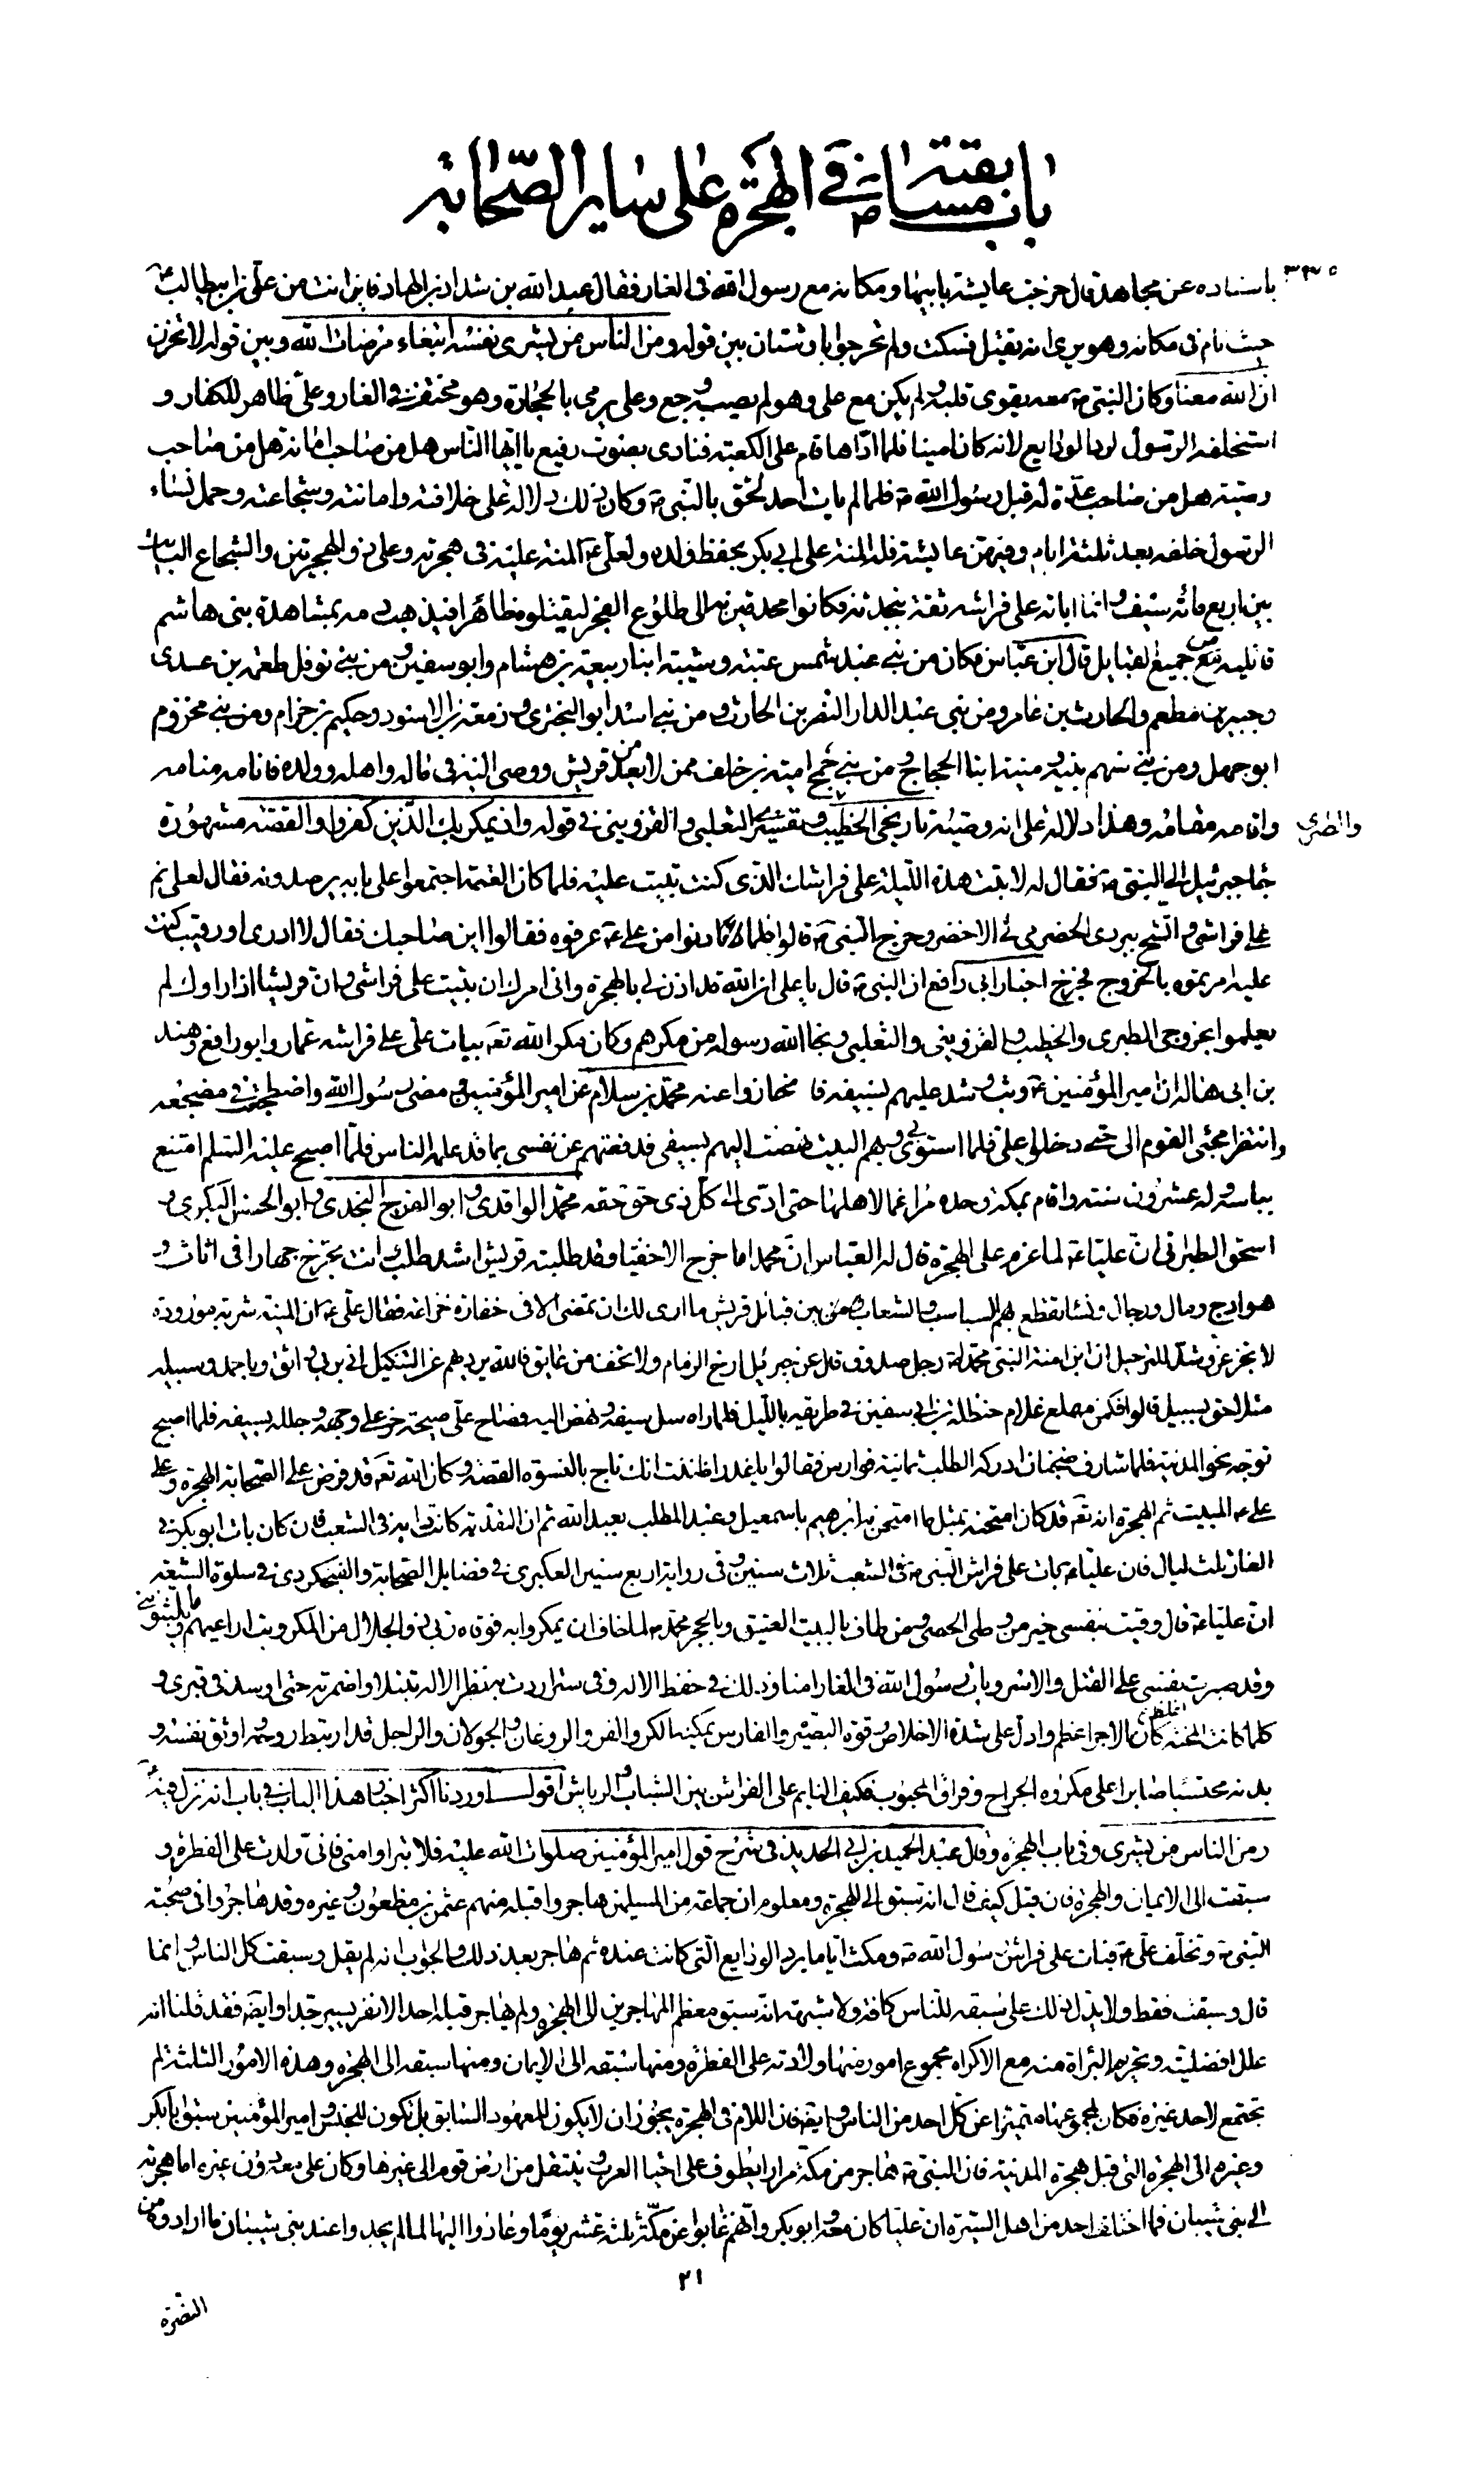 باب مسابقته ص في الهجرة على ساير الصحابه
باسناده عن مجاهد قال فخرت عايشة بابيها ومكانه مع رسول الله في الغار فقال عبد الله بن شداد بن الهاد فاين انت من علي بن ابيطالب ع
حيث نام في مكانه وهو يرى انه يقتل فسكتت ولم تحر جوابا وشتان بين قوله ومن الناس من يشري نفسه ابتغاء مرضات الله وبين قوله لا تحزن
ان الله معنا وكان النبي ص معه يقوى قلبه ولم يكن مع علي وهو لم يصبه وجع وعلي يرمى بالحجارة وهو مختف في الغار وعلي ظاهر للكفار و
استخلفه الرسول لرد الودايع لانه كان امينا فلما اداها قام على الكعبة فنادى بصوت رفيع يا ايها الناس هل من صاحب امانة هل من صاحب
وصية هل من صاحب عدة له قبل رسول الله ص فلما لم يات احد لحق بالنبي ص وكان ذلك دلالة على خلافته وامانته وشجاعته وحمل نساء
الرسول خلفه بعد ثلثة ايام وفيهن عايشة فله المنة على ابي بكر بحفظ ولده ولعلي ع المنة عليه في هجرته وعلي ذو الهجرتين والشجاع البائت
بين اربع مائة سيف وانما اباته على فراشه ثقة بنجدته فكانوا محدقين به الى طلوع الفجر ليقتلوه ظاهرا فيذهب دمه بمشاهدة بني هاشم
قاتليه من جميع القبايل قال ابن عباس فكان من بني عبد شمس عتبة وشيبة ابنا ربيعة بن هشام وابو سفين ومن بني نوفل طعمة بن عدي
وجبير بن مطعم والحارث بن عامر ومن بني عبد الدار النضر بن الحارث ومن بني اسد ابو البختري وزمعة بن الاسود وحكيم بن حزام ومن بني مخزوم
ابو جهل ومن بني سهم نبيه ومنبه ابنا الحجاج ومن بني جمح امية بن خلف ممن لا يعد من قريش ووصى اليه في ماله واهله وولده فانامه منامه
واقامه مقامه وهذا دلالة على انه وصيه تاريخي الخطيب والطبري وتفسيري الثعلبي والقزويني في قوله واذ يمكر بك الذين كفروا والقصة مشهورة
جاء جبرئيل الى النبي ص فقال له لا تبت هذه الليلة على فراشك الذي كنت تبيت عليه فلما كان العتمة اجتمعوا على بابه يرصدونه فقال لعلي نم
على فراشي واتشح ببردي الحضرمي الاخضر وخرج النبي ص قالوا فلما دنوا من علي ع عرفوه فقالوا اين صاحبك فقال لا ادري اورقيب كنت
عليه امرتموه بالخروج فخرج اخبار ابي رافع ان النبي ص قال يا علي ان الله قد اذن لي بالهجرة واني امرك ان تبيت على فراشي وان قريشا اذا راوك لم
يعلموا بخروجي الطبري والخطيب والقزويني والثعلبي ونجا الله رسوله من مكرهم وكان مكر الله تع بيات علي على فراشه عمار وابو رافع وهند
بن ابي هالة ان امير المؤمنين ع وثب وشد عليهم بسيفه فانحازوا عنه محمد بن سلام عن امير المؤمنين ومضى رسول الله واضطجعت في مضجعه
وانتظر مجئ القوم الي حتى دخلوا علي فلما استوى بي وبهم البيت نهضت اليهم بسيفي فدفعتهم عن نفسي بما قد علمه الناس فلما اصبح عليه السلم امتنع
بباسه وله عشرون سنة واقام بمكة وحده مراغما لاهلها حتى ادى الى كل ذي حق حقه محمد الواقدي وابو الفرج النجدي وابو الحسن البكري و
اسحق الطبراني ان عليا ع لما عزم على الهجرة قال له العباس ان محمدا ما خرج الا خفيا وقد طلبته قريش اشد طلب وانت تخرج جهارا في اثاث و
هوادج ومال ورجال ونساء تقطع بهم السباسب والشعاب من بين قبائل قريش ما ارى لك ان تمضي الا في خفارة خزاعة فقال علي ع ان المنية شربة مورودة
لا تجزعن وشد للترحيل ان ابن امنة النبي محمدا رجل صدوق قال عن جبرئيل ارخ الزمام ولا تخف من عايق فالله يرديهم عن التنكيل اني بربي واثق وباحمد وسبيله
متلاحق بسبيلي قالوا فكمن مهلع غلام حنظلة بن ابي سفين في طريقه بالليل فلما راه سل سيفه ونهض اليه فصاح علي صيحة خر على وجهه وجلله بسيفه فلما اصبح
توجه نحو المدينة فلما شارف ضجنان ادركه الطلب بثمانية فوارس فقالوا يا غدر اظننت انك ناج بالنسوة القصة وكان الله تع قد فرض على الصحابة الهجرة وعلى
علي ع المبيت ثم الهجرة انه تع قد كان امتحنه بمثل ما امتحن به ابرهيم باسمعيل وعبد المطلب بعبد الله ثم ان التفدية كانت دابه في الشعب فان كان بات ابو بكر في
الغار ثلث ليال فان عليا ع بات على فراش النبي ص في الشعب ثلاث سنين وفي رواية اربع سنين العكبري في فضايل الصحابة والفنجكردي في سلوة الشيعة
ان عليا ع قال وقيت بنفسي خير من وطى الحصى ومن طاف بالبيت العتيق وبالحجر محمد لما خاف ان يمكروا به فوقاه ربي ذو الجلال من المكر وبت اراعيهم وما يثبتونني
وقد صبرت نفسي على القتل والاسر وبات رسول الله في الغار امنا وذلك في حفظ الاله وفي ستر اردت به نظر الاله تبتلا واضمرته حتى اوسد في قبري و
كلما كانت المحنة اغلظ كان الاجر اعظم وادل على شدة الاخلاص وقوة البصيرة والفارس يمكنه الكر والفر والروغان والجولان والراجل قد ارتبط روحه واوثق نفسه و
بدنه محتسبا صابرا على مكروه الجراح وفراق المحبوب فكيف النايم على الفراش بين الثياب والرياش اقول اوردنا اكثر اخبار هذا الباب في باب انه نزل فيه
ومن الناس من يشري وفي باب الهجرة وقال عبد الحميد بن ابي الحديد في شرح قول امير المؤمنين صلوات الله عليه فلا تتبراوا مني فاني ولدت على الفطرة و
سبقت الى الايمان والهجرة فان قيل كيف قال انه سبق الى الهجرة ومعلوم ان جماعة من المسلمين هاجروا قبله منهم عثمن بن مظعون وغيره وقد هاجر ابو بكر في صحبة
النبي ص وتخلف علي ع فبات على فراش رسول الله ص ومكث اياما يرد الودايع التي كانت عنده ثم هاجر بعد ذلك والجواب انه لم يقل وسبقت كل الناس وانما
قال وسبقت فقط ولا يدل ذلك على سبقه للناس كافة ولا شبهة انه سبق معظم المهاجرين الى الهجرة ولم يهاجر قبله احد الا نفر يسير جدا وايضا فقد قلنا انه
علل افضليته وتحريم البراة منه مع الاكراه بمجموع امور منها ولادته على الفطرة ومنها سبقه الى الايمان ومنها سبقه الى الهجرة وهذه الامور الثلثة لم
تجتمع لاحد غيره فكان بمجموعها متميزا عن كل احد من الناس وايضا فان اللام في الهجرة يجوز ان لا يكون للمعهود السابق بل تكون للجنس وامير المؤمنين سبق ابا بكر
وغيره الى الهجرة التي قبل هجرة المدينة فان النبي ص هاجر من مكة مرارا يطوف على احياء العرب وينتقل من ارض قوم الى غيرها وكان علي معه دون غيره اما هجرته
الى بني شيبان فما اختلف احد من اهل السيرة ان عليا كان معه وابو بكر وانهم غابوا عن مكة ثلثة عشر يوما وعادوا اليها لما لم يجدوا عند بني شيبان ما ارادوه من
٢١
النصرة